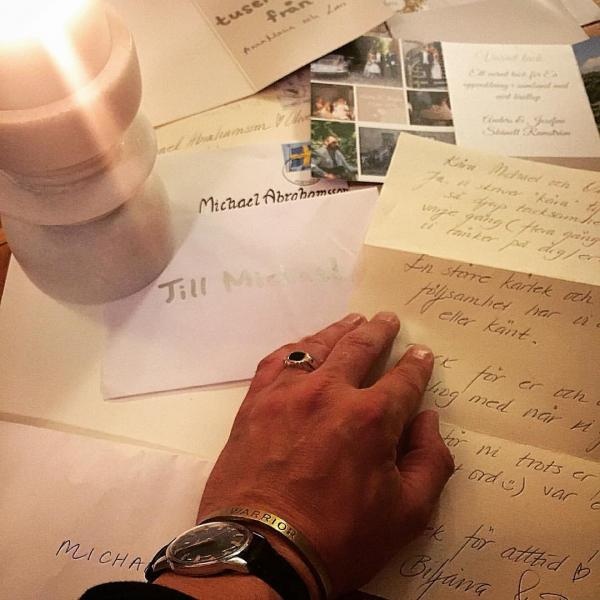 tusen
från
Annaklara och Lars
Varmt tack
Ett varmt tack för Er
uppvaktning i samband med
vårt bröllop
Anders & Josefine
Michael Abrahamsson
Till Michael
Abrahamsson
Kära Michael och
Ja, vi skriver "kära"
så djup tacksamhet
varje gång (flera gång
vi tänker på dig/er
En större kärlek och
följsamhet har vi
eller känt.
för er och
med när ni
för ni trots er
ord☺) var
för alltid ♡
Biljana &
WARRIOR
MICHA